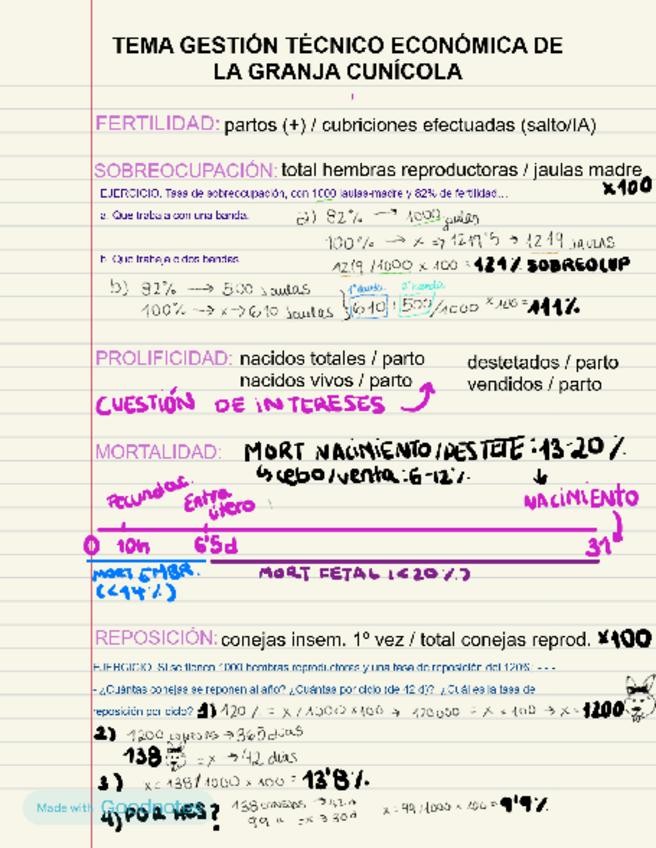 TEMA GESTIÓN TÉCNICO ECONÓMICA DE
LA GRANJA CUNÍCOLA
FERTILIDAD: partos (+) / cubriciones efectuadas (salto/IA)
SOBREOCUPACIÓN: total hembras reproductoras / jaulas madre
x100
EJERCICIO. Tasa de sobreocupación, con 1000 jaulas-madre y 82% de fertilidad...
a. Que trabaja con una banda.
a) 82% → 1000 jaulas
100% → x → 1219'5 → 1219 jaulas
1219 /1000 x 100 = 121% SOBREOCUP
b. Que trabaje a dos bandas
b) 82% → 500 jaulas
100% → x → 610 jaulas
1ª banda 2ª banda
610 + 500 /1000 x 100 = 111%
PROLIFICIDAD: nacidos totales / parto
nacidos vivos / parto
destetados / parto
vendidos / parto
CUESTIÓN DE INTERESES
MORTALIDAD: MORT NACIMIENTO/DESTETE: 13-20%
↳ cebo/venta: 6-12%
Fecundac. Entra útero
NACIMIENTO
0 10h 6'5d 31
MORT EMBR. (<14%)
MORT FETAL (<20%)
REPOSICIÓN: conejas insem. 1º vez / total conejas reprod. x100
EJERCICIO. Si se tienen 1000 hembras reproductoras y una tasa de reposición del 120%: - - -
- ¿Cuántas conejas se reponen al año? ¿Cuántas por ciclo (de 42 d)? ¿Cuál es la tasa de
reposición por ciclo? 1) 120% = x / 1000 x100 → 120000 = x x 100 → x = 1200
2) 1200 conejas → 365 días
138 = x → 42 días
3) x = 138/1000 x 100 = 13'8%
4) POR MES?
138 conejas → 42d
99 = x → 30d
x = 99/1000 x 100 = 9'9%
Made with Goodnotes